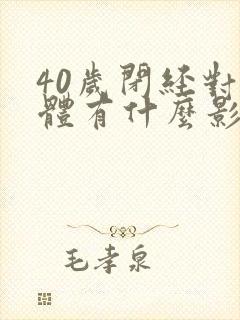 40歲閉經對
體有什麼影
毛孝泉